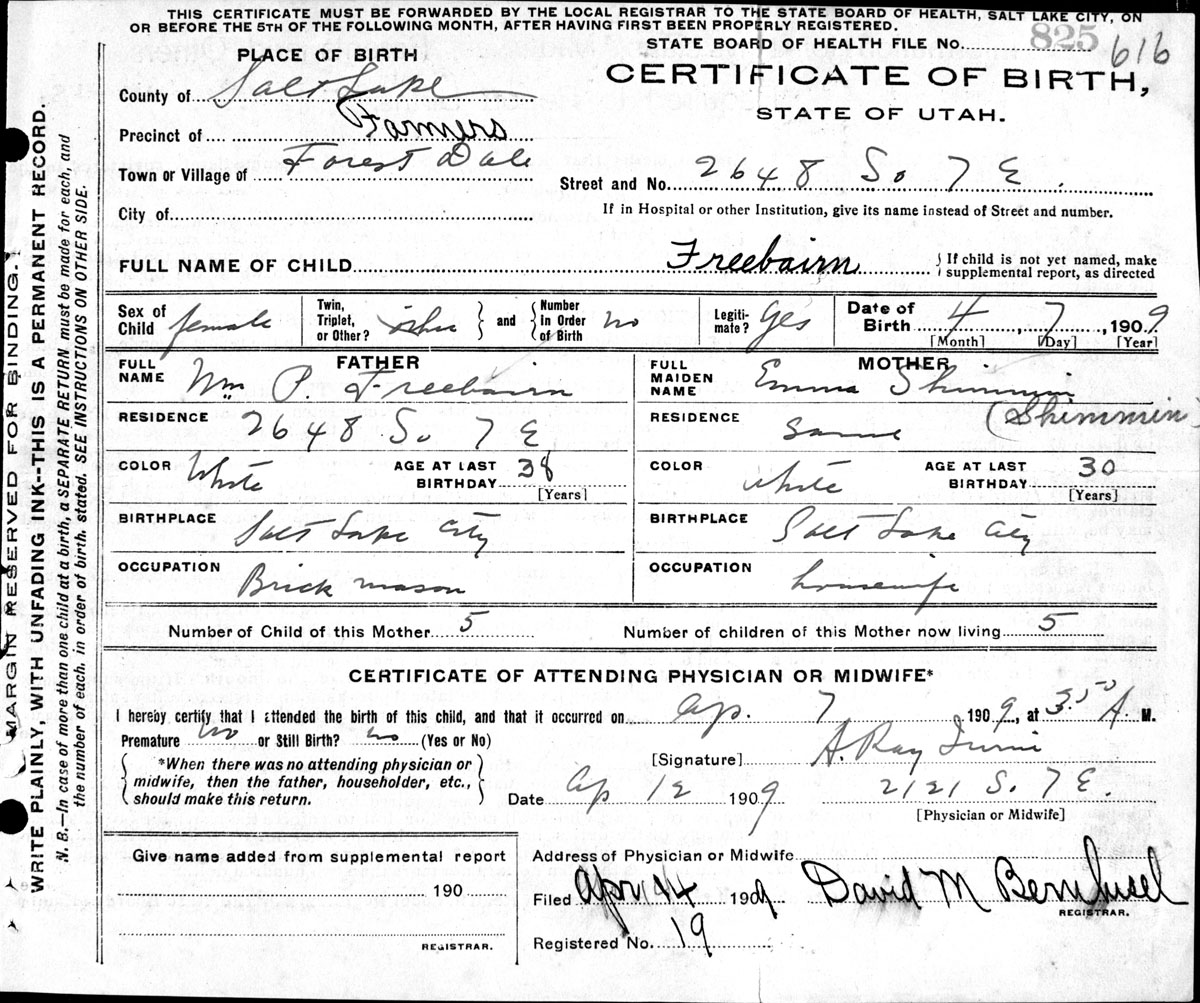 THIS CERTIFICATE MUST BE FORWARDED BY THE LOCAL REGISTRAR TO THE STATE BOARD OF HEALTH, SALT LAKE CITY, ON
OR BEFORE THE 5TH OF THE FOLLOWING MONTH, AFTER HAVING FIRST BEEN PROPERLY REGISTERED.
STATE BOARD OF HEALTH FILE No. 825 616
PLACE OF BIRTH
CERTIFICATE OF BIRTH,
STATE OF UTAH.
County of Salt Lake
Precinct of Farmers
Town or Village of Forest Dale
Street and No. 2648 So 7 E.
City of
If in Hospital or other Institution, give its name instead of Street and number.
FULL NAME OF CHILD Freebairn { If child is not yet named, make supplemental report, as directed
Sex of Child female Twin, Triplet, or Other? } and { Number In Order of Birth no Legiti-mate? Yes Date of Birth 4, 7, 1909
[Month] [Day] [Year]
FATHER MOTHER
FULL NAME Wm P. Freebairn FULL MAIDEN NAME Emma Shimmin
(Shimmin)
RESIDENCE 2648 So 7 E RESIDENCE same
COLOR White AGE AT LAST BIRTHDAY 38 [Years] COLOR white AGE AT LAST BIRTHDAY 30 [Years]
BIRTHPLACE Salt Lake City BIRTHPLACE Salt Lake City
OCCUPATION Brick mason OCCUPATION housewife
Number of Child of this Mother 5 Number of children of this Mother now living 5
CERTIFICATE OF ATTENDING PHYSICIAN OR MIDWIFE*
I hereby certify that I attended the birth of this child, and that it occurred on Ap. 7 1909, at 3:50 A. M.
Premature no or Still Birth? no (Yes or No)
{ *When there was no attending physician or midwife, then the father, householder, etc., should make this return. }
[Signature] A. Ray Irvine
Date Ap 12 1909 2121 S. 7 E.
[Physician or Midwife]
Give name added from supplemental report
190
REGISTRAR.
Address of Physician or Midwife
Filed Apr 14 1909 David M Bernhisel
REGISTRAR.
Registered No. 19
MARGIN RESERVED FOR BINDING.
WRITE PLAINLY, WITH UNFADING INK--THIS IS A PERMANENT RECORD.
N. B.—In case of more than one child at a birth, a SEPARATE RETURN must be made for each, and
the number of each, in order of birth, stated. SEE INSTRUCTIONS ON OTHER SIDE.